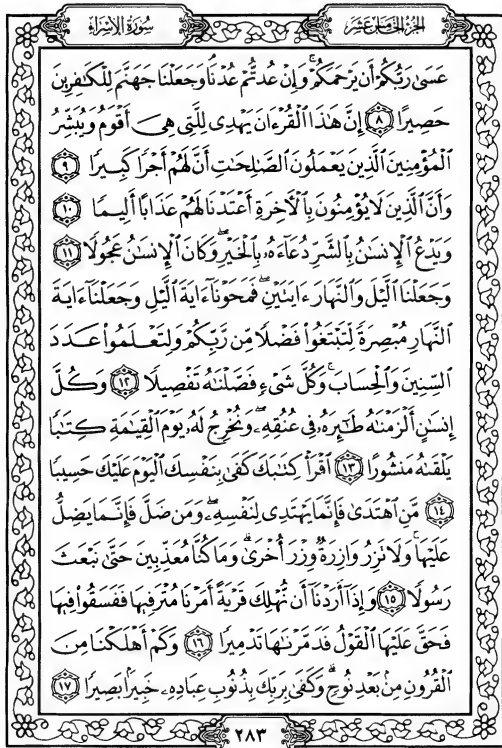 الجزء الخامس عشر
سورة الإسراء
عَسَىٰ رَبُّكُمْ أَن يَرْحَمَكُمْ ۚ وَإِنْ عُدتُّمْ عُدْنَا وَجَعَلْنَا جَهَنَّمَ لِلْكَٰفِرِينَ
حَصِيرًا ٨ إِنَّ هَٰذَا الْقُرْءَانَ يَهْدِى لِلَّتِى هِىَ أَقْوَمُ وَيُبَشِّرُ
الْمُؤْمِنِينَ الَّذِينَ يَعْمَلُونَ الصَّٰلِحَٰتِ أَنَّ لَهُمْ أَجْرًا كَبِيرًا ٩
وَأَنَّ الَّذِينَ لَا يُؤْمِنُونَ بِالْأَخِرَةِ أَعْتَدْنَا لَهُمْ عَذَابًا أَلِيمًا ١٠
وَيَدْعُ الْإِنسَٰنُ بِالشَّرِّ دُعَآءَهُۥ بِالْخَيْرِ ۖ وَكَانَ الْإِنسَٰنُ عَجُولًا ١١
وَجَعَلْنَا الَّيْلَ وَالنَّهَارَ ءَايَتَيْنِ ۖ فَمَحَوْنَآ ءَايَةَ الَّيْلِ وَجَعَلْنَآ ءَايَةَ
النَّهَارِ مُبْصِرَةً لِّتَبْتَغُوا۟ فَضْلًا مِّن رَّبِّكُمْ وَلِتَعْلَمُوا۟ عَدَدَ
السِّنِينَ وَالْحِسَابَ ۚ وَكُلَّ شَىْءٍ فَصَّلْنَٰهُ تَفْصِيلًا ١٢ وَكُلَّ
إِنسَٰنٍ أَلْزَمْنَٰهُ طَٰٓئِرَهُۥ فِى عُنُقِهِۦ ۖ وَنُخْرِجُ لَهُۥ يَوْمَ الْقِيَٰمَةِ كِتَٰبًا
يَلْقَىٰهُ مَنشُورًا ١٣ اقْرَأْ كِتَٰبَكَ كَفَىٰ بِنَفْسِكَ الْيَوْمَ عَلَيْكَ حَسِيبًا
١٤ مَّنِ اهْتَدَىٰ فَإِنَّمَا يَهْتَدِى لِنَفْسِهِۦ ۖ وَمَن ضَلَّ فَإِنَّمَا يَضِلُّ
عَلَيْهَا ۚ وَلَا تَزِرُ وَازِرَةٌ وِزْرَ أُخْرَىٰ ۗ وَمَا كُنَّا مُعَذِّبِينَ حَتَّىٰ نَبْعَثَ
رَسُولًا ١٥ وَإِذَآ أَرَدْنَآ أَن نُّهْلِكَ قَرْيَةً أَمَرْنَا مُتْرَفِيهَا فَفَسَقُوا۟ فِيهَا
فَحَقَّ عَلَيْهَا الْقَوْلُ فَدَمَّرْنَٰهَا تَدْمِيرًا ١٦ وَكَمْ أَهْلَكْنَا مِنَ
الْقُرُونِ مِنۢ بَعْدِ نُوحٍ ۗ وَكَفَىٰ بِرَبِّكَ بِذُنُوبِ عِبَادِهِۦ خَبِيرًۢا بَصِيرًا ١٧
٢٨٣